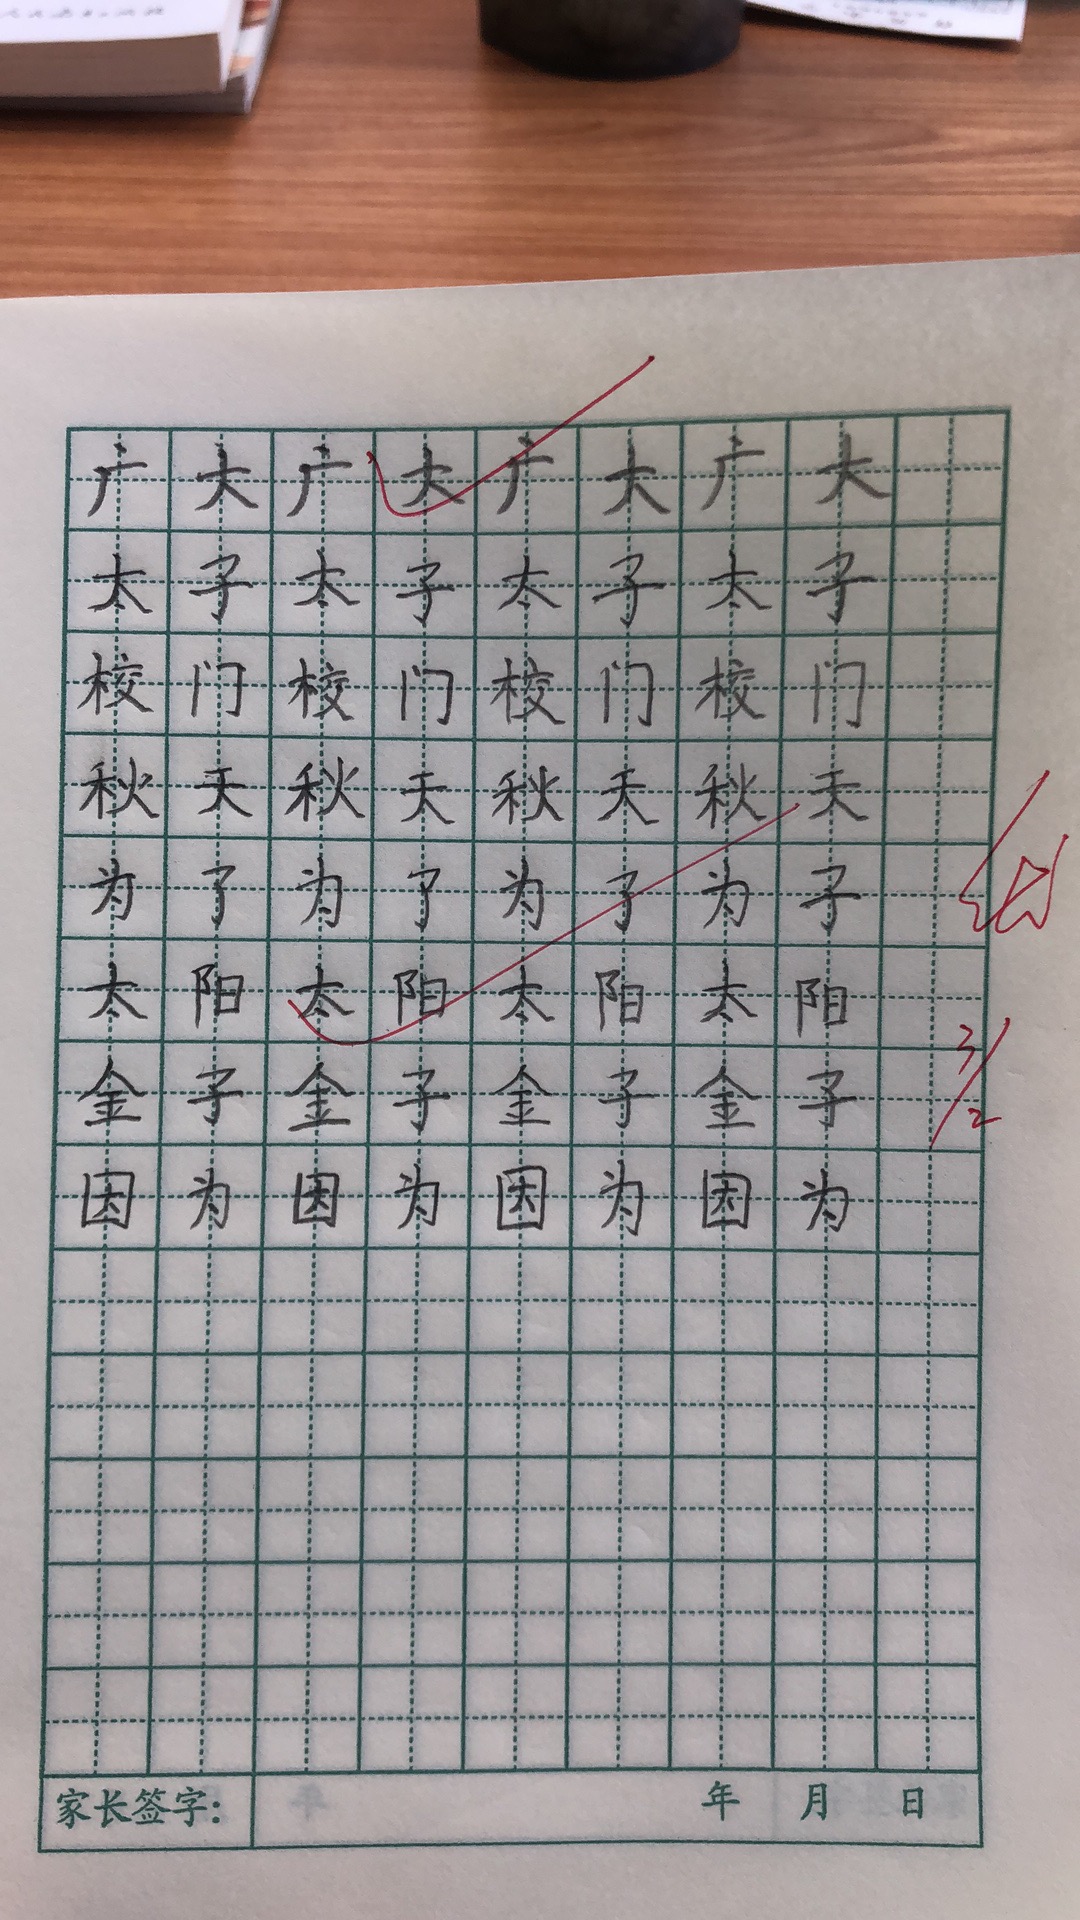 广大广大广大广大
太子太子太子太子
校门校门校门校门
秋天秋天秋天秋天
为了为了为了为子
太阳太阳太阳太阳
金子金子金子金子
因为因为因为因为
3/2
家长签字： 年 月 日